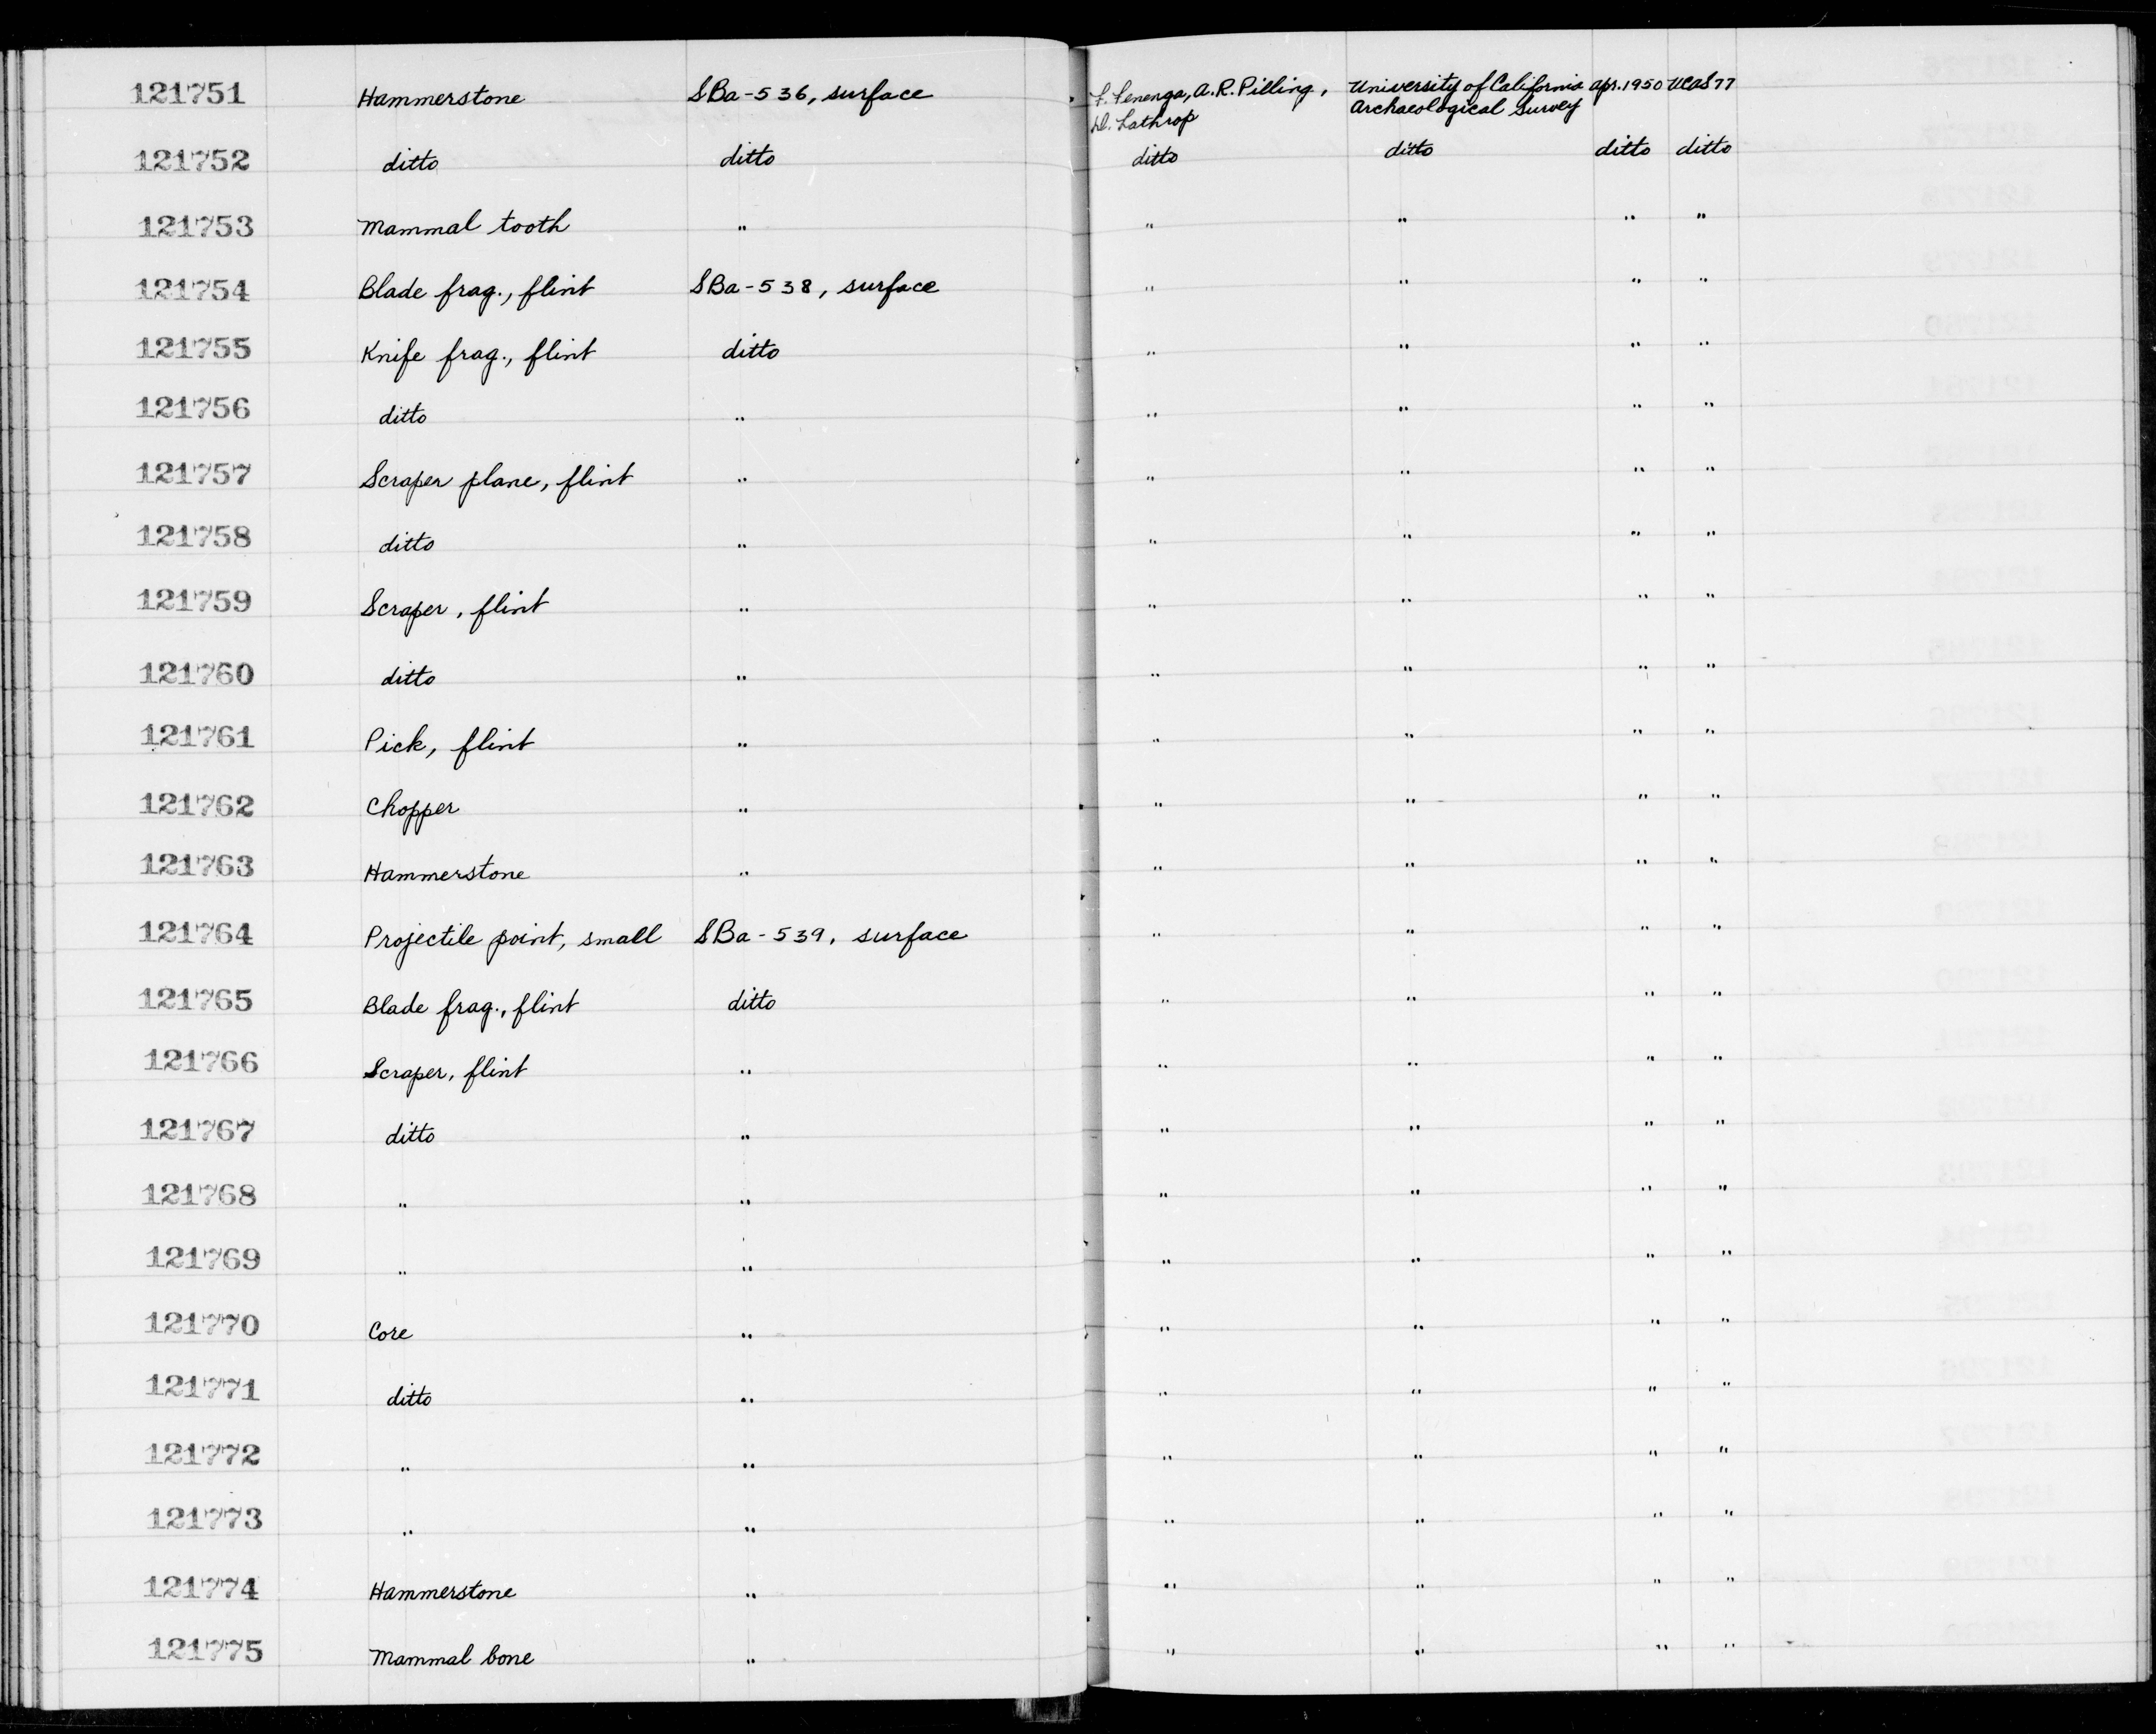 121751 Hammerstone SBa-536, surface F. Fenenga, A.R. Pilling, University of California Apr. 1950 UCAS 77
D. Lathrop Archaeological Survey
121752 ditto ditto ditto ditto ditto ditto
121753 Mammal tooth " " " " "
121754 Blade frag., flint SBa-538, surface " " " "
121755 Knife frag., flint ditto " " " "
121756 ditto " " " " "
121757 Scraper plane, flint " " " " "
121758 ditto " " " " "
121759 Scraper, flint " " " " "
121760 ditto " " " " "
121761 Pick, flint " " " " "
121762 Chopper " " " " "
121763 Hammerstone " " " " "
121764 Projectile point, small SBa-539, surface " " " "
121765 Blade frag., flint ditto " " " "
121766 Scraper, flint " " " " "
121767 ditto " " " " "
121768 " " " " " "
121769 " " " " " "
121770 Core " " " " "
121771 ditto " " " " "
121772 " " " " " "
121773 " " " " " "
121774 Hammerstone " " " " "
121775 Mammal bone " " " " "